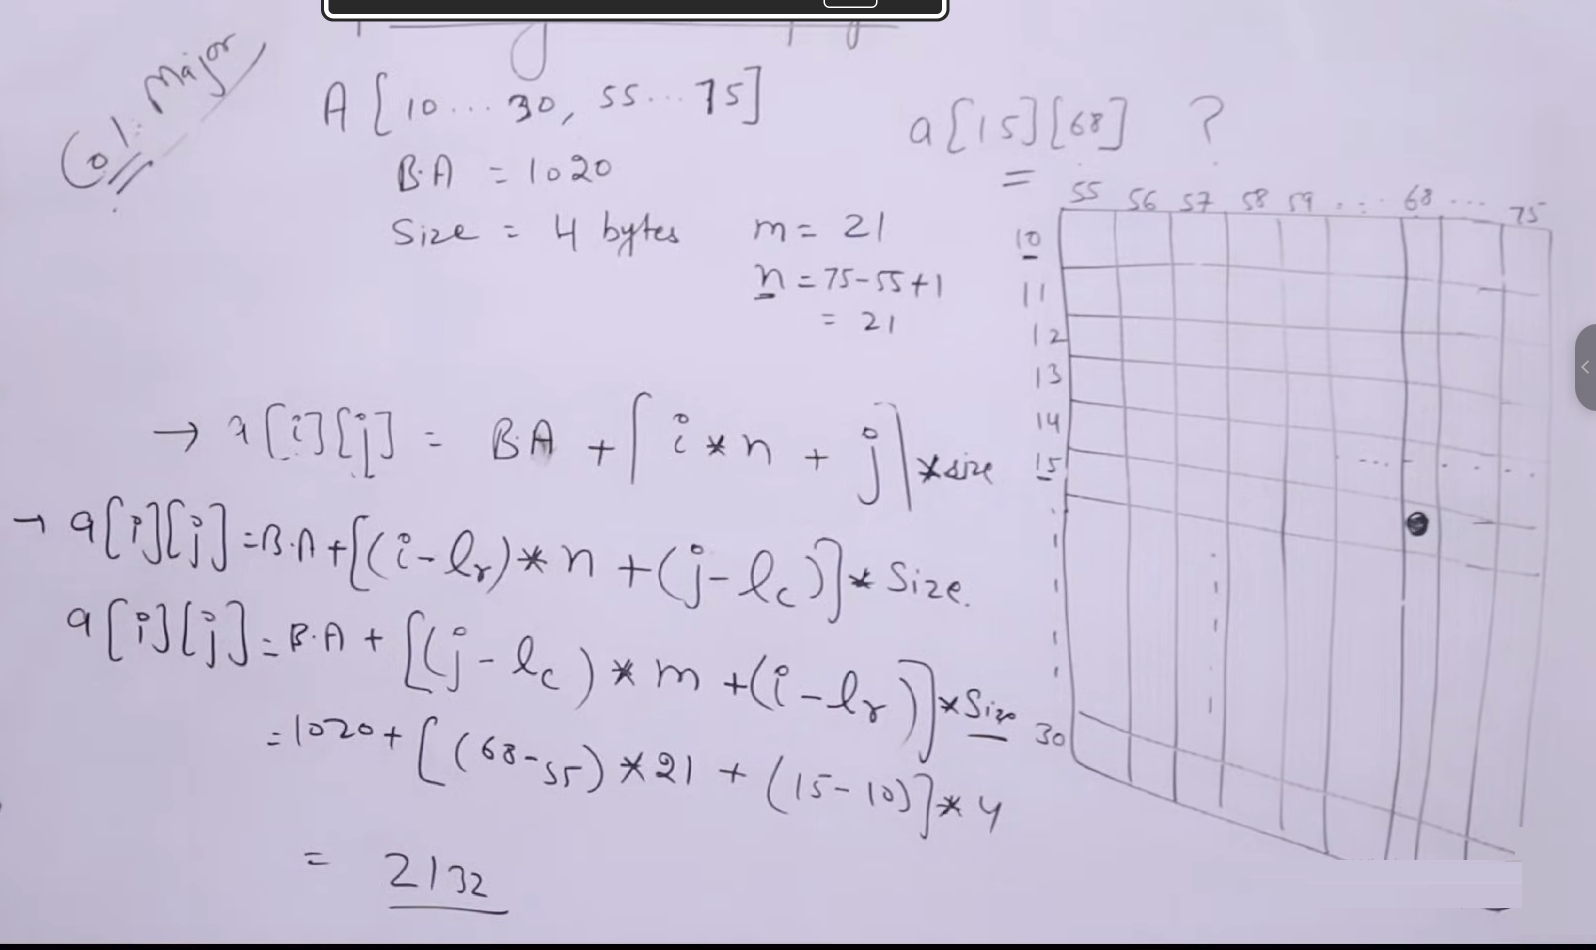 Col. Major
A[10...30, 55...75]
B.A = 1020
Size = 4 bytes
m = 21
n = 75-55+1
= 21
a[15][68] ?
=
55 56 57 58 59 ... 68 ... 75
10
11
12
13
14
15
30
→ a[i][j] = B.A + [i * n + j] * size
→ a[i][j] = B.A + [(i - lr) * n + (j - lc)] * Size.
a[i][j] = B.A + [(j - lc) * m + (i - lr)] * Size
= 1020 + [(68-55) * 21 + (15-10)] * 4
= 2132